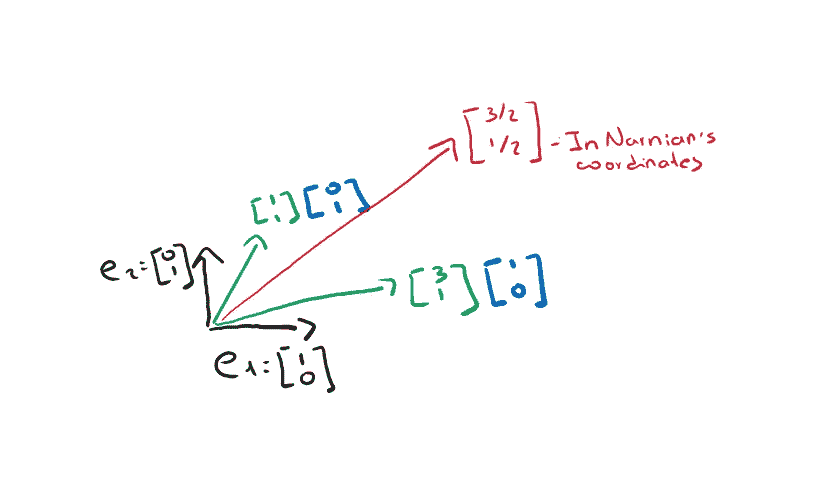 [3/2
1/2] - In Narnian's
coordinates
[1
1] [0
1]
e₂=[0
1]
[3
1] [1
0]
e₁=[1
0]